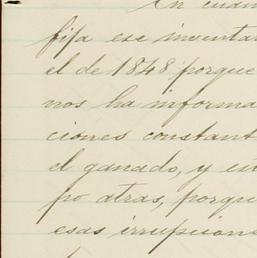 En cuan
fija ese inventar
el de 1848 porque
nos ha informa
ciones constant
el ganado, y en
po atras, porqu
esas irrupcion